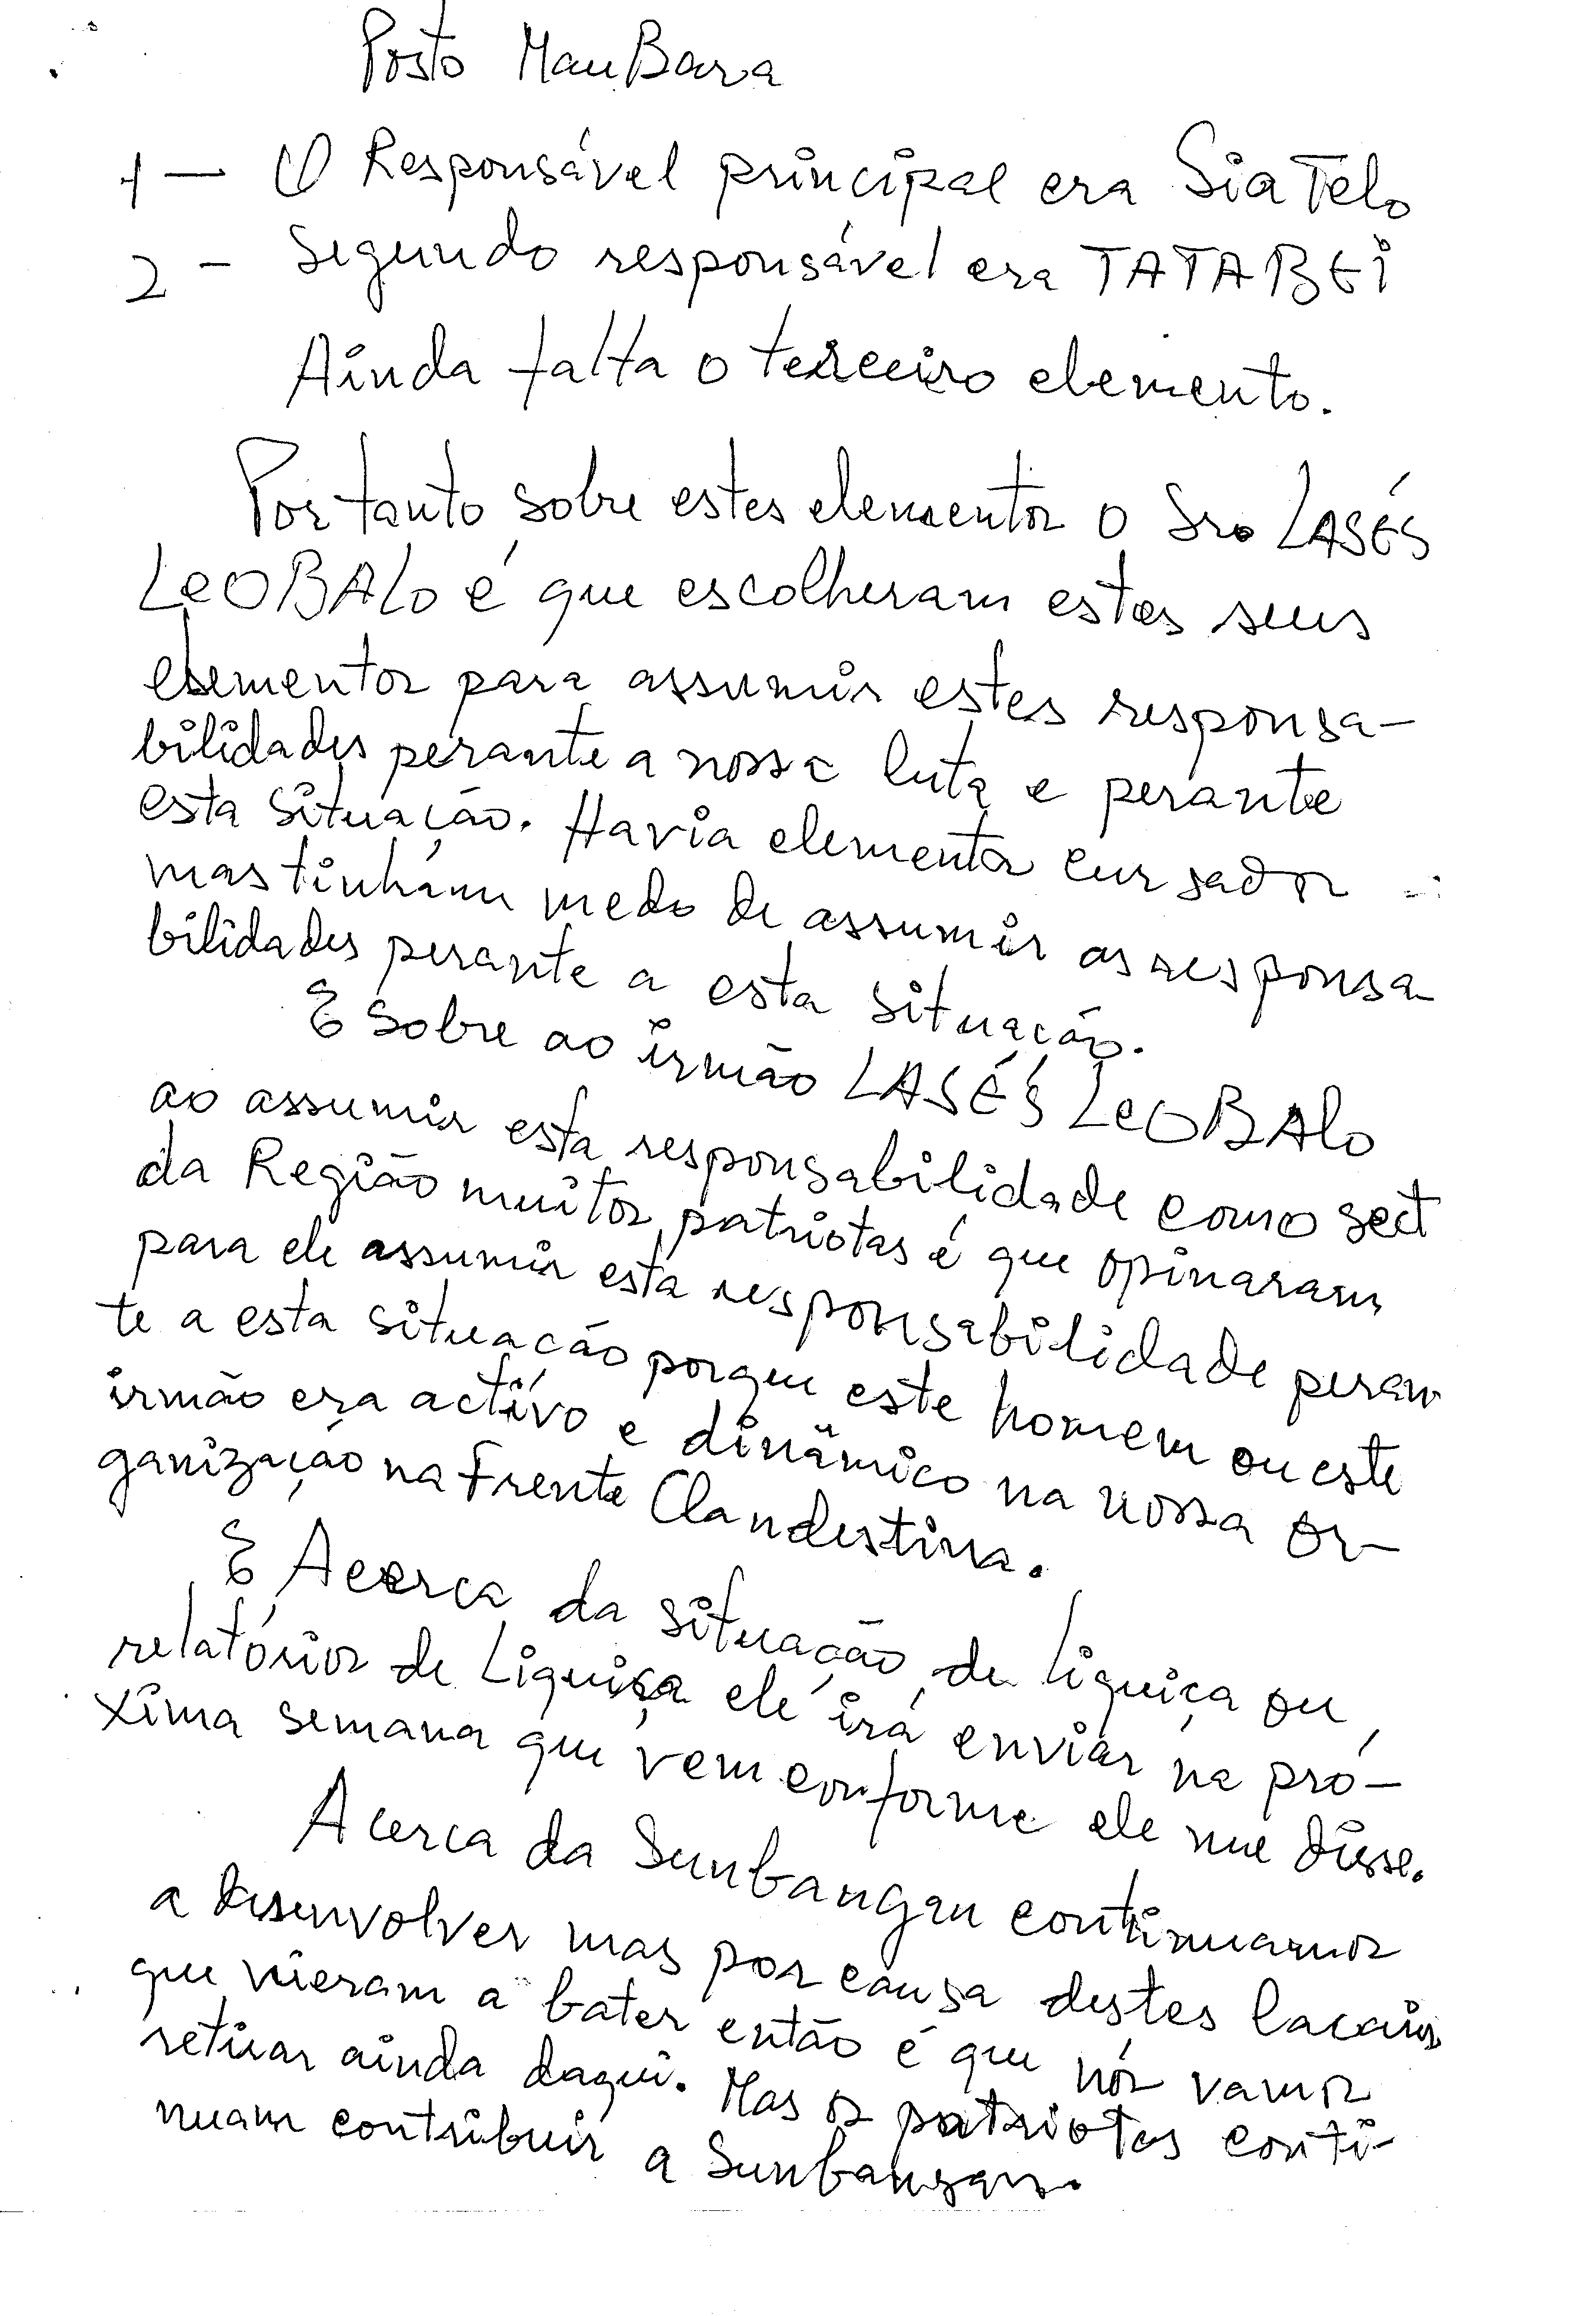 Posto MauBara
1 — O Responsável principal era Sia Telo
2 - Segundo responsável era TATABEI
Ainda falta o terceiro elemento.
Portanto sobre estes elementos o Sro LASÉS
LeOBALo é que escolheram estes seus
elementos para assumir estes responsa-
bilidades perante a nossa luta e perante
esta situação. Havia elementos cursados
mas tinham medo de assumir as responsa-
bilidades perante a esta situação.
E sobre ao irmão LASÉS LeOBALo
ao assumir esta responsabilidade como sect
da Região muitos patriotas é que opinaram
para ele assumir esta responsabilidade peran
te a esta situação porque este homem ou este
irmão era activo e dinâmico na nossa or-
ganização na Frente Clandestina.
E Acerca da situação de liquiça ou
relatórios de Liquiça ele irá enviar na pró-
xima semana que vem conforme ele me disse.
Acerca da Sunbangan continuamos
a desenvolver mas por causa destes lacaios
que vieram a bater então é que nós vamos
retirar ainda daqui. Mas os patriotas conti-
nuam contribuir a Sunbangan.